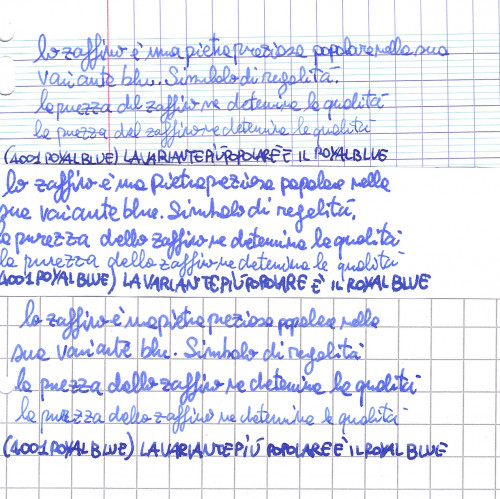 lo zaffiro è una pietra preziosa popolare nella sua
variante blu. Simbolo di regalità.
la purezza del zaffiro ne determina la qualità
la purezza del zaffiro ne determina la qualità
(4001 ROYAL BLUE) LA VARIANTE PIÙ POPOLARE È IL ROYAL BLUE
lo zaffiro è una pietra preziosa popolare nella
sua variante blu. Simbolo di regalità,
la purezza dello zaffiro ne determina la qualità
la purezza dello zaffiro ne determina la qualità
4001 ROYAL BLUE) LA VARIANTE PIÙ POPOLARE È IL ROYAL BLUE
lo zaffiro è una pietra preziosa popolare nella
sua variante blu. Simbolo di regalità
la purezza dello zaffiro ne determina la qualità
la purezza dello zaffiro ne determina la qualità
(4001 ROYAL BLUE) LA VARIANTE PIÙ POPOLARE È IL ROYAL BLUE